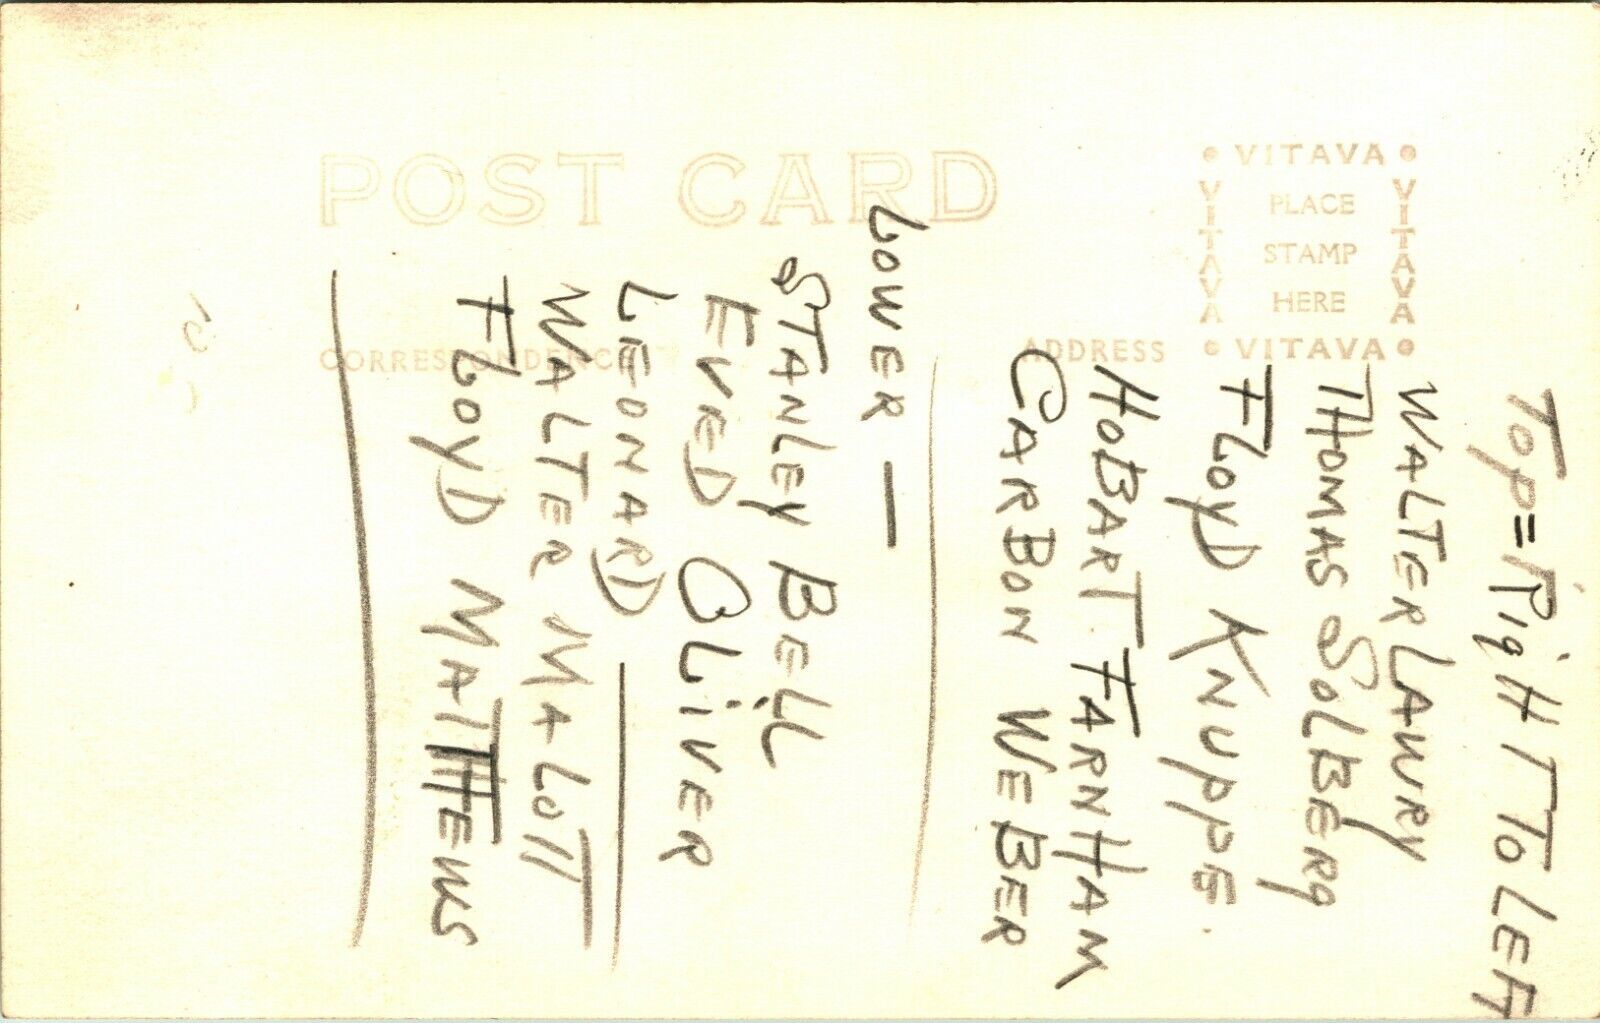 POST CARD
CORRESPONDENCE
ADDRESS
VITAVA
VITAVA
PLACE
STAMP
HERE
VITAVA
VITAVA
TOP = RigHT TO LEFT
WALTER LAWRY
THOMAS SOLBERg
FLOYD KNUPPE
HOBART FARNHAM
CARBON WEBER
LOWER —
STANLEY BELL
EVRED OLiVER
LEONARD
WALTER MALOTT
FLOYD MATTHEWS